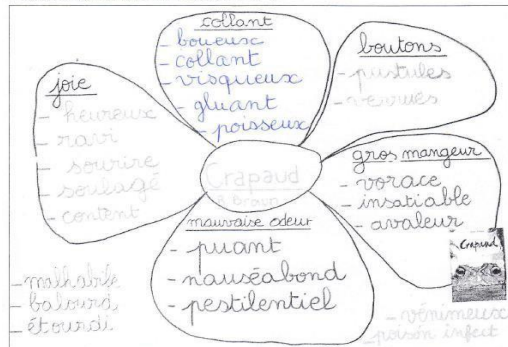 collant
- boueux
- collant
- visqueux
- gluant
- poisseux
boutons
- pustules
- verrues
joie
- heureux
- ravi
- sourire
- soulagé
- content
Crapaud
gros mangeur
- vorace
- insatiable
- avaleur
mauvaise odeur
- puant
- nauséabond
- pestilentiel
- malhabile
- balourd
- étourdi
Crapaud
- vénimeux
- poison infect